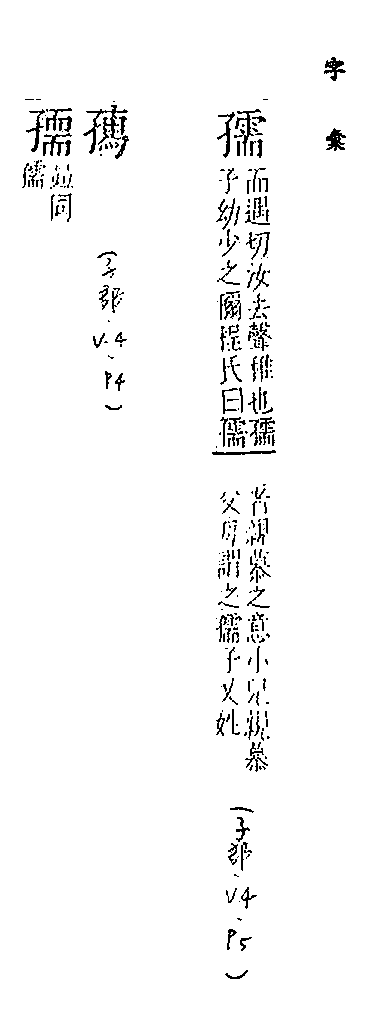 字彙
孺
而遇切汝去聲稚也孺
子幼少之爾程氏曰孺
者親慕之意小兒親慕
父母謂之孺子又姓
(子部·V4·P5)
竝同
孺
(子部·V.4·P4)